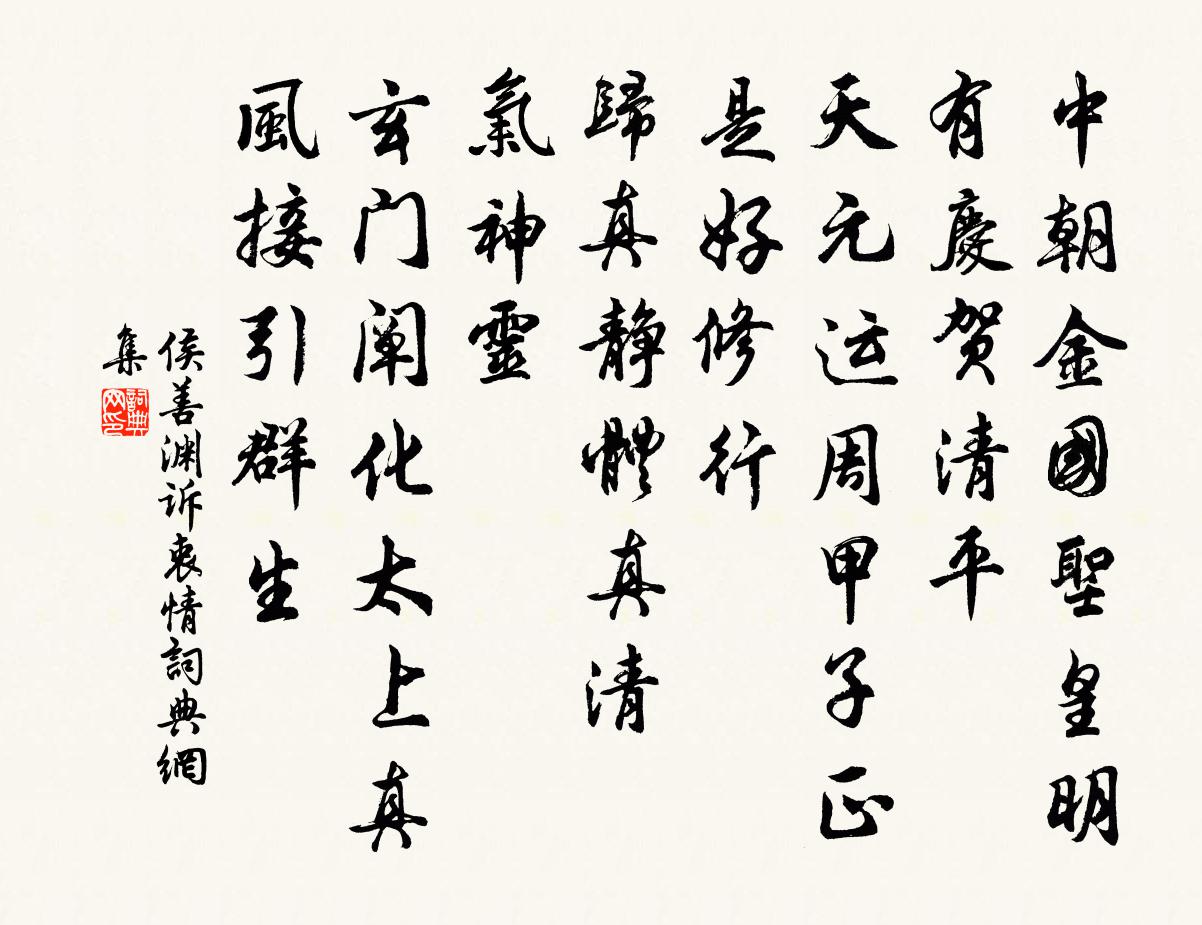 中朝金國聖皇明
有慶贺清平
天元运周甲子正
是好修行
歸真靜體真清
氣神靈
玄门阐化太上真
風接引群生
侯善渊诉衷情詞典網
集
詞典網印